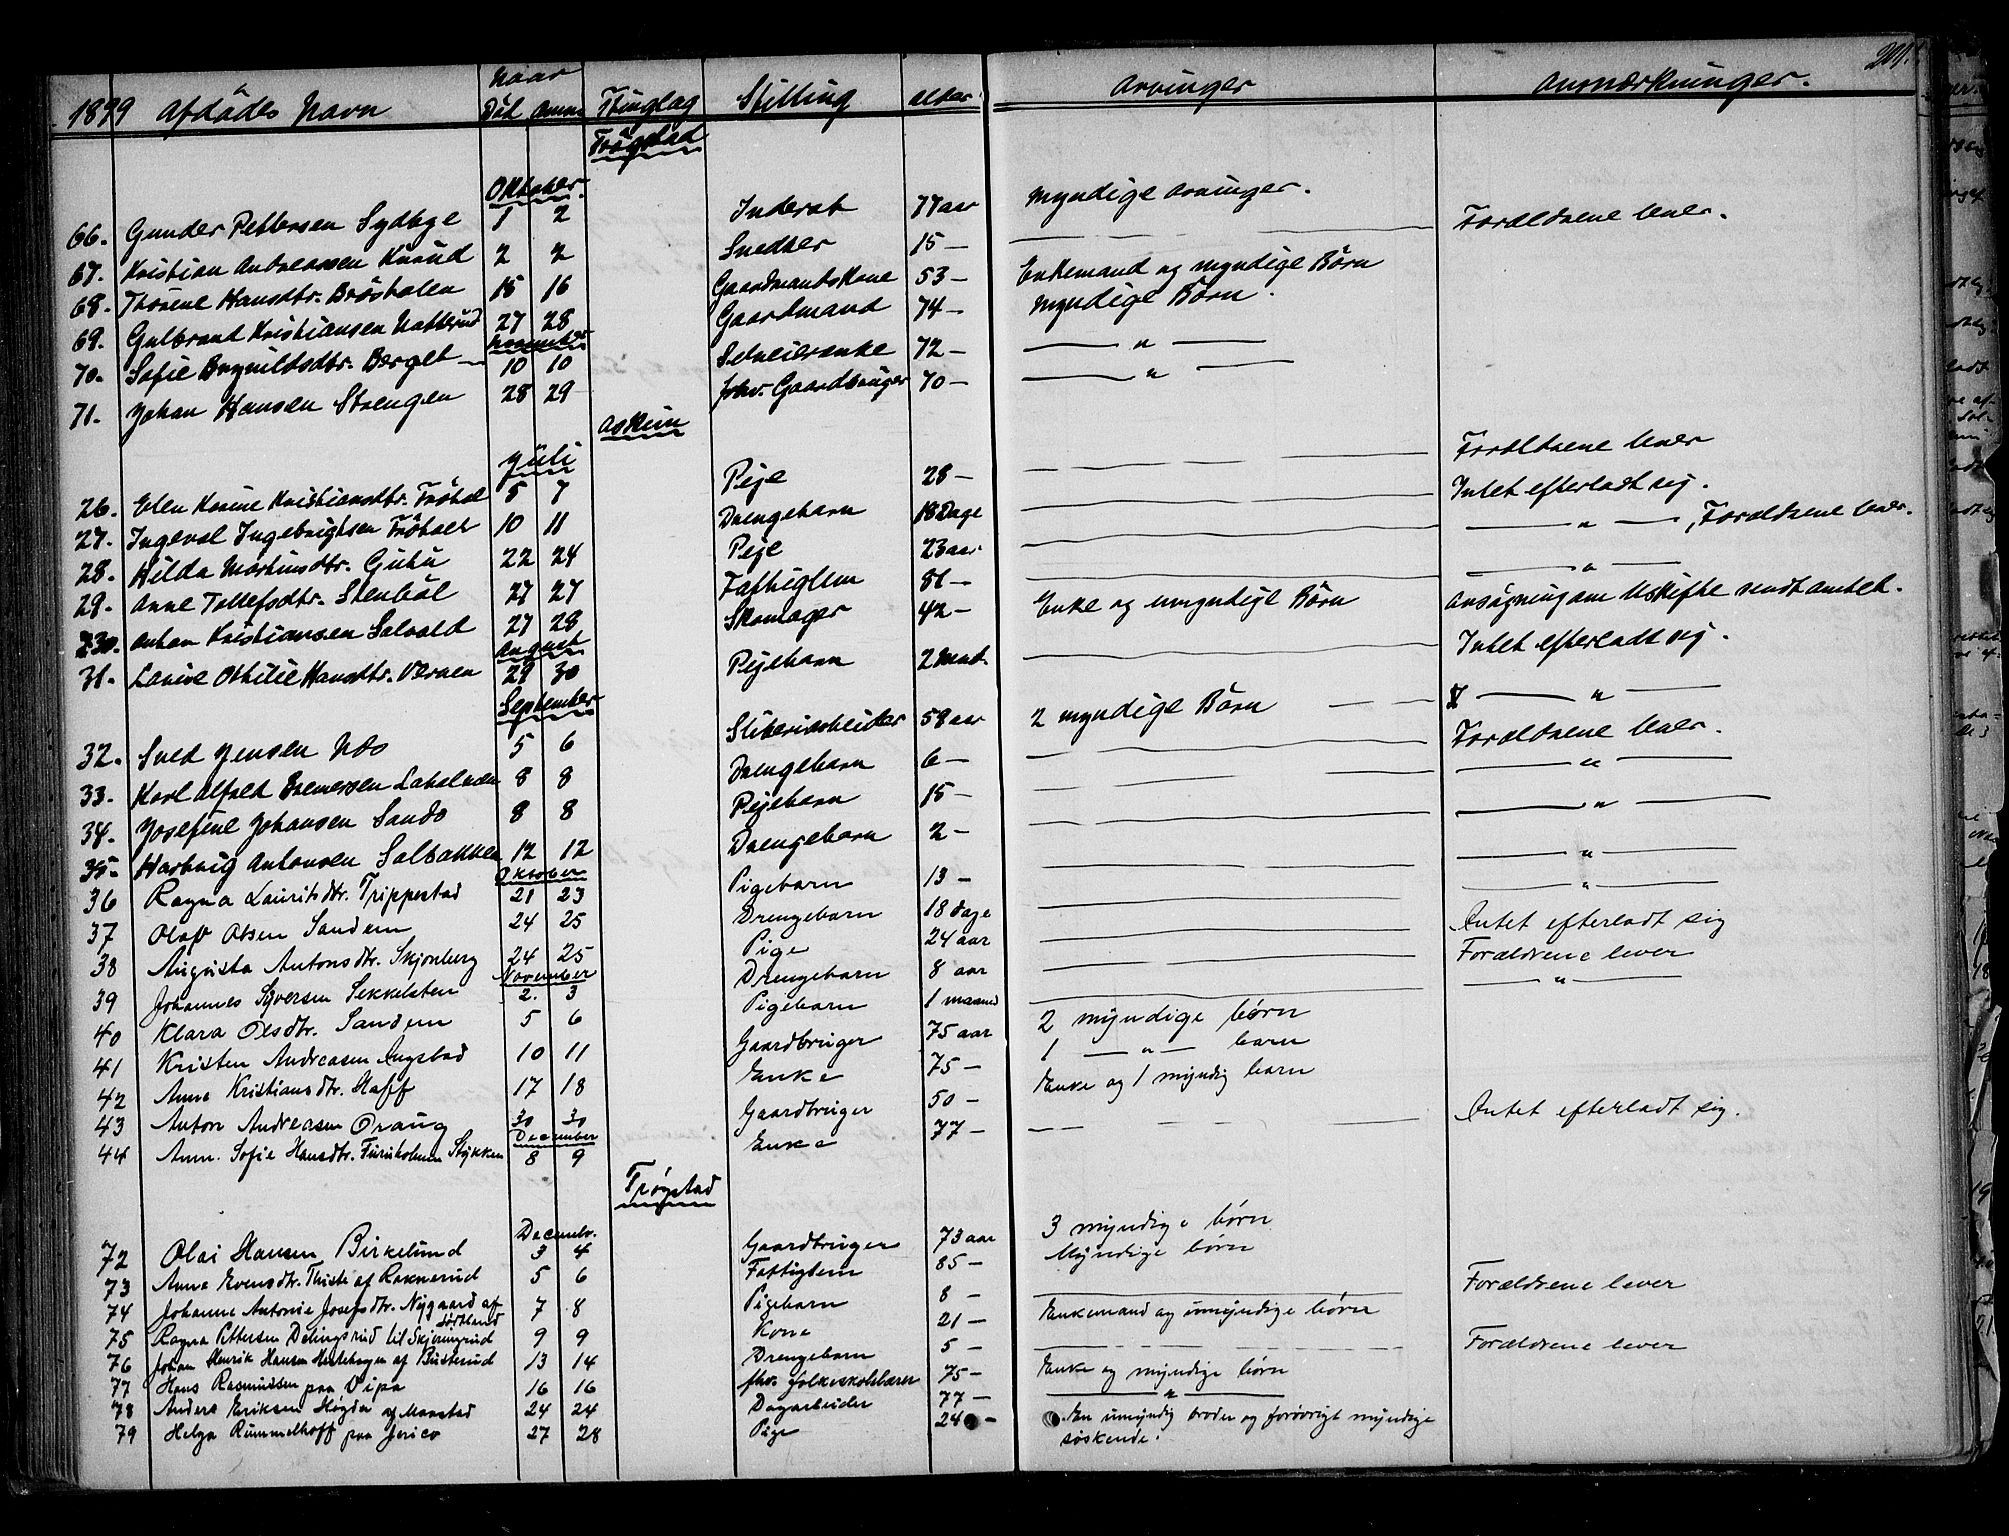 201.
1899 Afdødes Navn Naar Død Anm. Thinglag Stilling Alder. Arvinger Anmærkninger.
Trøgstad
Oktober.
66. Gunder Pettersen Sydbge 1 2 Inderst 77 aar Myndige Arvinger.
67. Kristian Andreassen 2 2 Snedker 15 — Forældrene lever.
68. Thorine Hansdtr. Brøsholen 15 16 Gaardmandskone 53 — Enkemand og myndige Börn
69. Gulbrand Kristiansen Natterud 27 28 Gaardmand 74 — Myndige Börn.
November
70. Sofie Brynildsdtr. Berget 10 10 Selveierenke 72 — — " —
71. Johan Hansen Strengen 28 29 fhv. Gaardbruger 70 — — " —
Askim
Juli
26. Elen Karine Kristiansdtr. Tröbøl 5 7 Pige 28 — Forældrene lever
27. Ingeval Ingebrigtsen Tröbøl 10 11 Drengebarn 18 Dage Intet efterladt sig.
28. Hilda Martinsdtr. Guhu 22 24 Pige 23 aar — " —, Forældrene lever.
29. Anne Tollefsdtr. Stenböl 27 27 Fattiglem 81 — — " —
30. Anton Kristiansen Solvold 27 28 Skomager 42 — Enke og umyndige Börn Ansøgning om Uskifte sendt Amtet.
August
31. Lovise Othilie Hansdtr. 29 30 Pigebarn 2 Mnd. Intet efterladt sig.
September
32. Sved Jensen Næs 5 6 Sliberiarbeider 58 aar 2 myndige Börn — " —
33. Karl Alfred 8 8 Drengebarn 6 — Forældrene lever.
34. Josefine Johansen Sando 8 8 Pigebarn 15 — — " —
35 Hartvig Antonsen Solbakken 12 12 Drengebarn 2 — — " —
Oktober
36 Ragna Lauritsdtr. Trippestad 21 23 Pigebarn 13 — — " —
37 Olaf Olsen Sandem 24 25 Drengebarn 18 dage — " —
38 Augusta Antonsdtr. Skjønberg 24 25 Pige 24 aar Intet efterladt sig
November
39 Johannes Syversen Sekkelsten 2. 3 Drengebarn 8 aar Forældrene lever
40 Klara Olsdtr. Sandem 5 6 Pigebarn 1 maaned — " —
41 Kristen Andreasen Rugstad 10 11 Gaardbruger 75 aar 2 myndige børn
42 Anne Kristiansdtr. Haff 17 18 Enke 75 — 1 — " — barn
43 Anton Andreasen Oraug 30 30 Gaardbruger 50 — Enke og 1 myndig barn
December
44 Ann. Sofie Hansdtr. Furuholmen Stykken 8 9 Enke 77 — Intet efterladt sig.
Trøgstad
Decembr.
72 Olai Hansen Birkelund 3 4 Gaardbruger 73 aar 3 myndige børn
73 Anne Evensdtr. Thiste af Raknerud 5 6 Fattiglem 85 — Myndige børn
74 Johanne Antonie Josefsdtr. Nygaard af Sørtland 7 8 Pigebarn 8 — Forældrene lever
75 Ragna Pettersen Delingsrud til Skjeningrud 9 9 Kone 21 — Enkemand og umyndige børn
76 Johan Henrik Hansen af Busterud 13 14 Drengebarn 5 — Forældrene lever
77 Hans Rasmussen paa Vipa 16 16 fhv. folkeskolelærer 75 — Enke og myndige børn
78 Anders Eriksen Høgda af Monstad 24 24 Dagarbeider 77 — — " —
79 Helga Rummelhoff paa Jerico 27 28 Pige 24 — En umyndig broder og forøvrigt myndige
søskende.